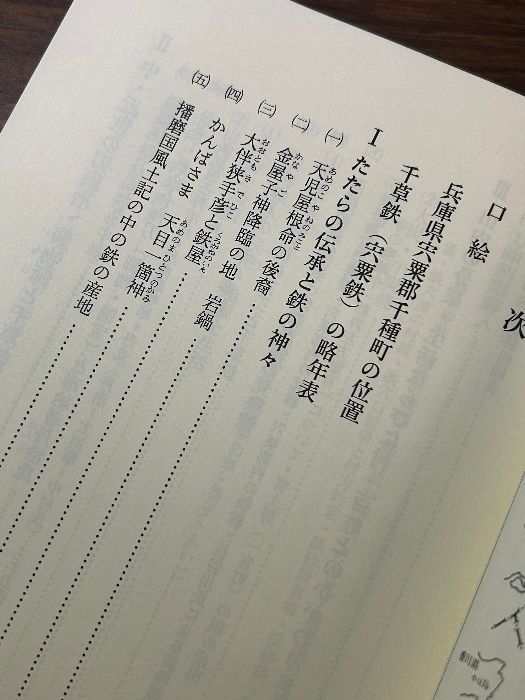 次
口絵
兵庫県宍粟郡千種町の位置
千草鉄（宍粟鉄）の略年表
Ⅰ たたらの伝承と鉄の神々
㈠ 天児屋根命の後裔
㈡ 金屋子神降臨の地 岩鍋
㈢ 大伴狭手彦と鉄屋
㈣ かんばさま 天目一箇神
㈤ 播磨国風土記の中の鉄の産地